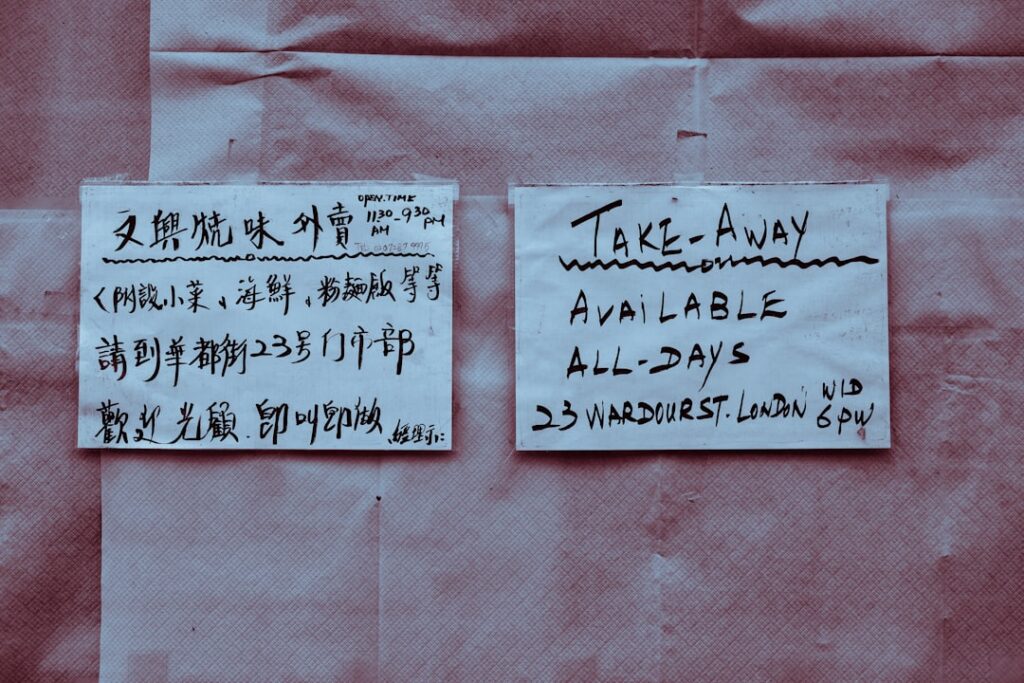 文興燒味外賣 OPEN.TIME
1130-930
AM PM
<附設小菜、海鮮、粉麵飯等等
請到華都街23号门市部
歡迎光顧.即叫即做 經理示:
TAKE-AWAY
AVAiLABLE
ALL-DAYS
23 WARDOUR ST. LONDON W1D
6PW